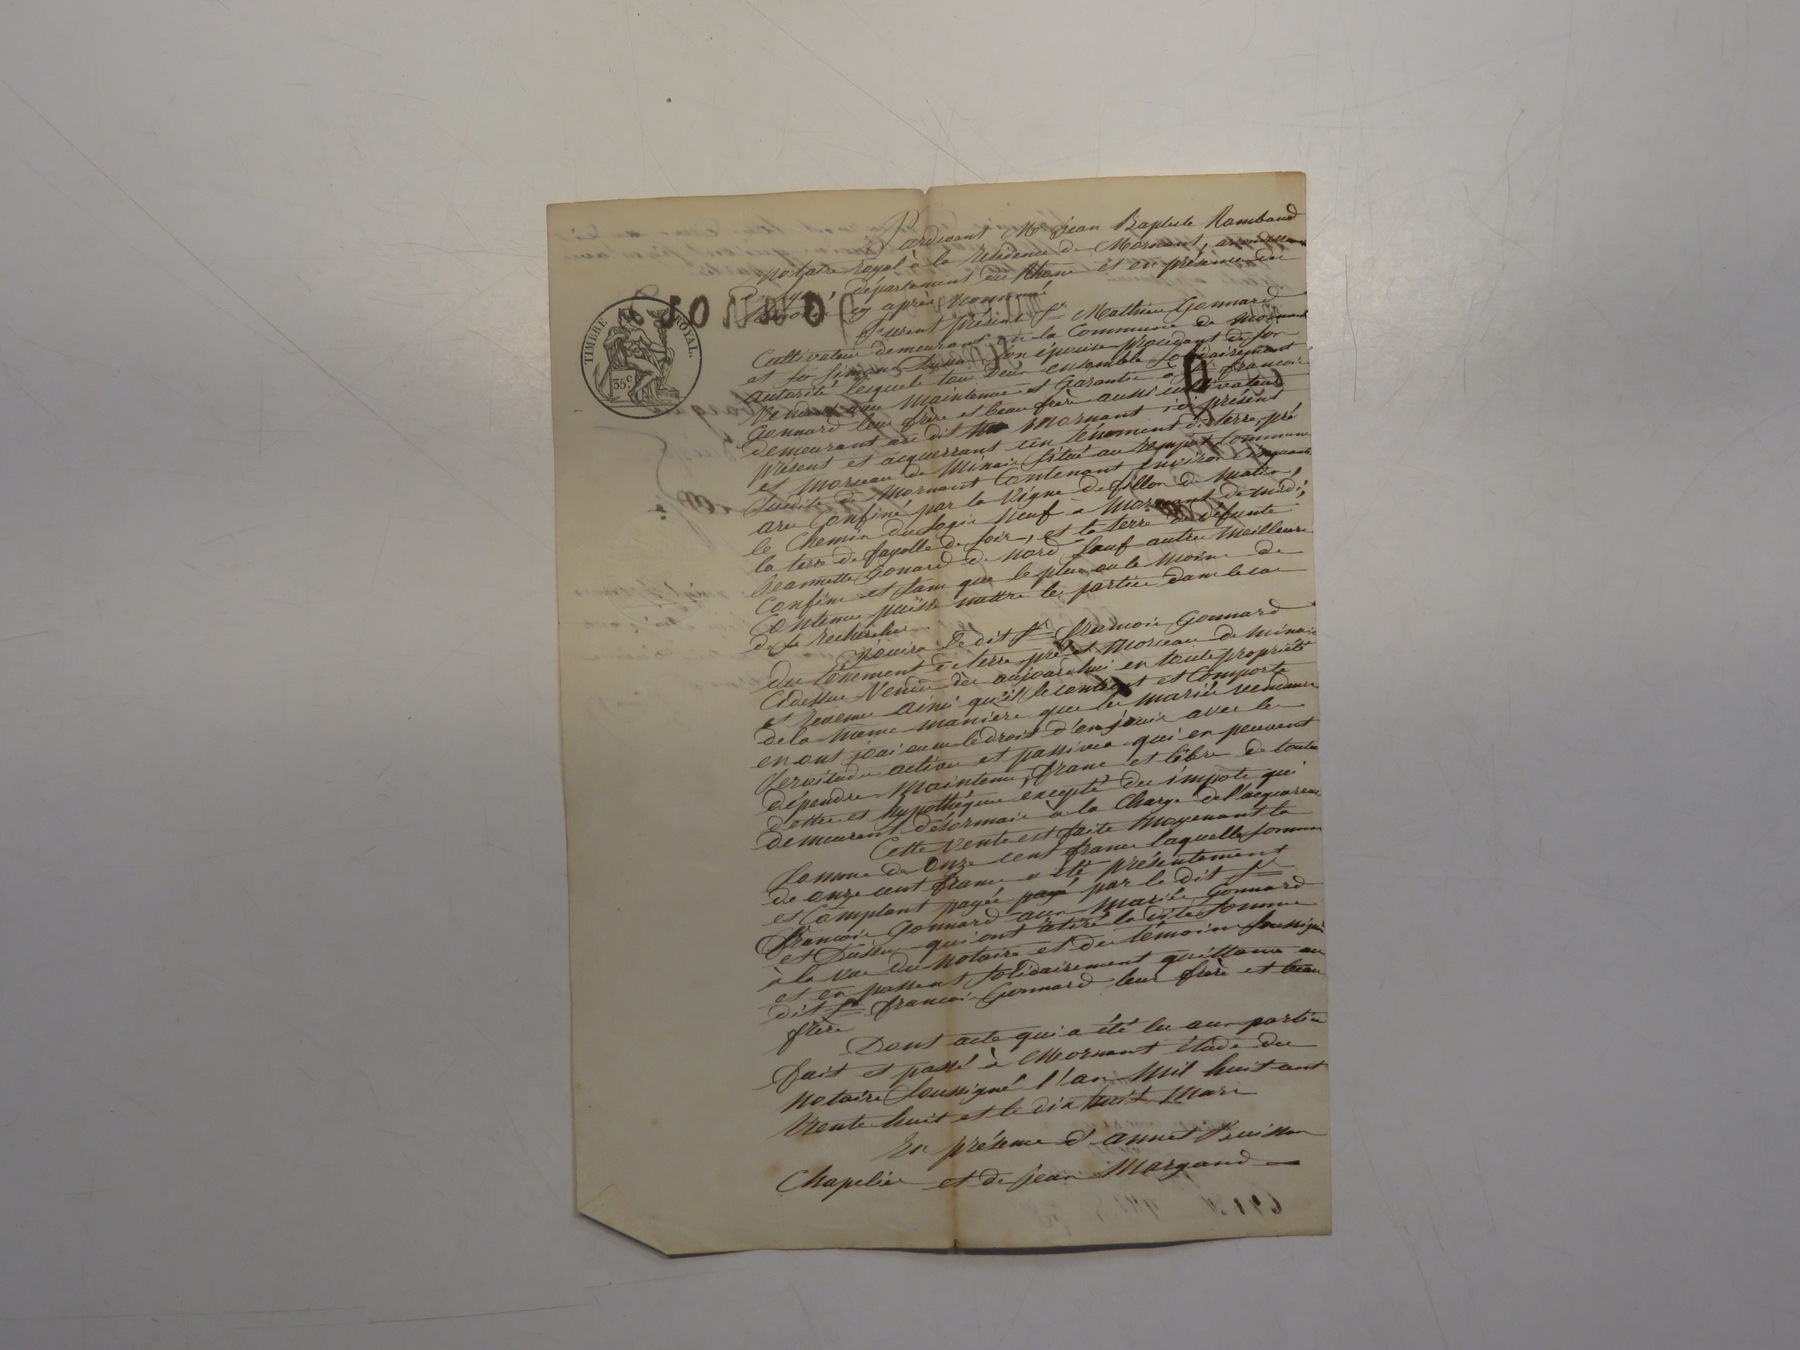 TIMBRE ROYAL.
35c
Pardevant Me Jean Baptiste Rambaud
Notaire royal à la résidence de Mornant, arrondissement
de Lyon, département du Rhône et en présence des
témoins cy après nommés
furent présent Sr Mathieu Gonnard
Cultivateur demeurant en la Commune de Mornant
et son épouse procédant de son
autorité lesquels tou deux ensemble Solidairement
Vendent avec Maintenue et Garantie à Sr francois
Gonnard leur frère et beau frère aussi cultivateur
demeurant au dit Mornant ici présent
présent et acquerrant un ténement de terre, pré
et Morceau de Minais situé au rempot Commune
Susdite de Mornant Contenant environ cinquante
are Confiné par la Vigne de fillon de Matin,
le Chemin du Logis Neuf à Mornant de midi,
la terre de fayolle de soir, et la terre de défunte
Jeannette Gonard de Nord Sauf autre Meilleurs
Confins et sans que le plus ou le Moins de
Contenu puisse nuire les parties dans le cas
de se rechercher
Jouira le dit Sr francois Gonnard
du ténement de terre pré et Morceau de Minais
Cidessus Vendu dès aujourdhui en toute propriété
et Revenu ainsi qu'il se contient et Comporte
de la Meme maniere que les mariés vendeurs
en ont joui ou eu le droit d'en jouir avec les
droits actions et passives qui en peuvent
dépendre Maintenu, franc et libre de toutes
dettes et hypothèques excepté des impots qui
demeurent désormais à la Charge de l'acquereur
Cette vente est faite Moyenant la
Somme de Onze cent francs laquelle somme
de onze cent francs a été présentement
et Comptant payée payé par le dit Sr
francois Gonnard aux mariés Gonnard
et qui ont retiré la dite Somme
à la vue du Notaire et des témoins soussignés
et en passent Solidairement quittance au
dit Sr francois Gonnard leur frère et beau
frère
Dont acte qui a été lu aux parties
fait et passé à Mornant étude du
notaire Soussigné l'an Mil huit cent
trente huit et le dix huit Mars
En présence d'annet Buisson
Chapelier et de jean Morgand